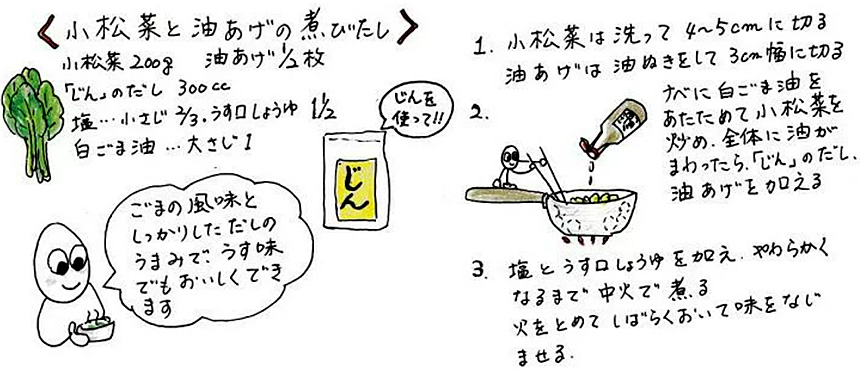 〈小松菜と油あげの煮びたし〉
小松菜200g 油あげ1/2枚
「じん」のだし 300cc
塩…小さじ2/3.うす口しょうゆ 1/2
白ごま油…大さじ1
じんを
使って!!
じん
ごまの風味と
しっかりしただしの
うまみで、うす味
でもおいしくでき
ます
1. 小松菜は洗って4〜5cmに切る
油あげは油ぬきをして3cm幅に切る
2. ナベに白ごま油を
あたためて小松菜を
炒め、全体に油が
まわったら、「じん」のだし、
油あげを加える
3. 塩とうす口しょうゆを加え、やわらかく
なるまで中火で煮る
火をとめてしばらくおいて味をなじ
ませる.